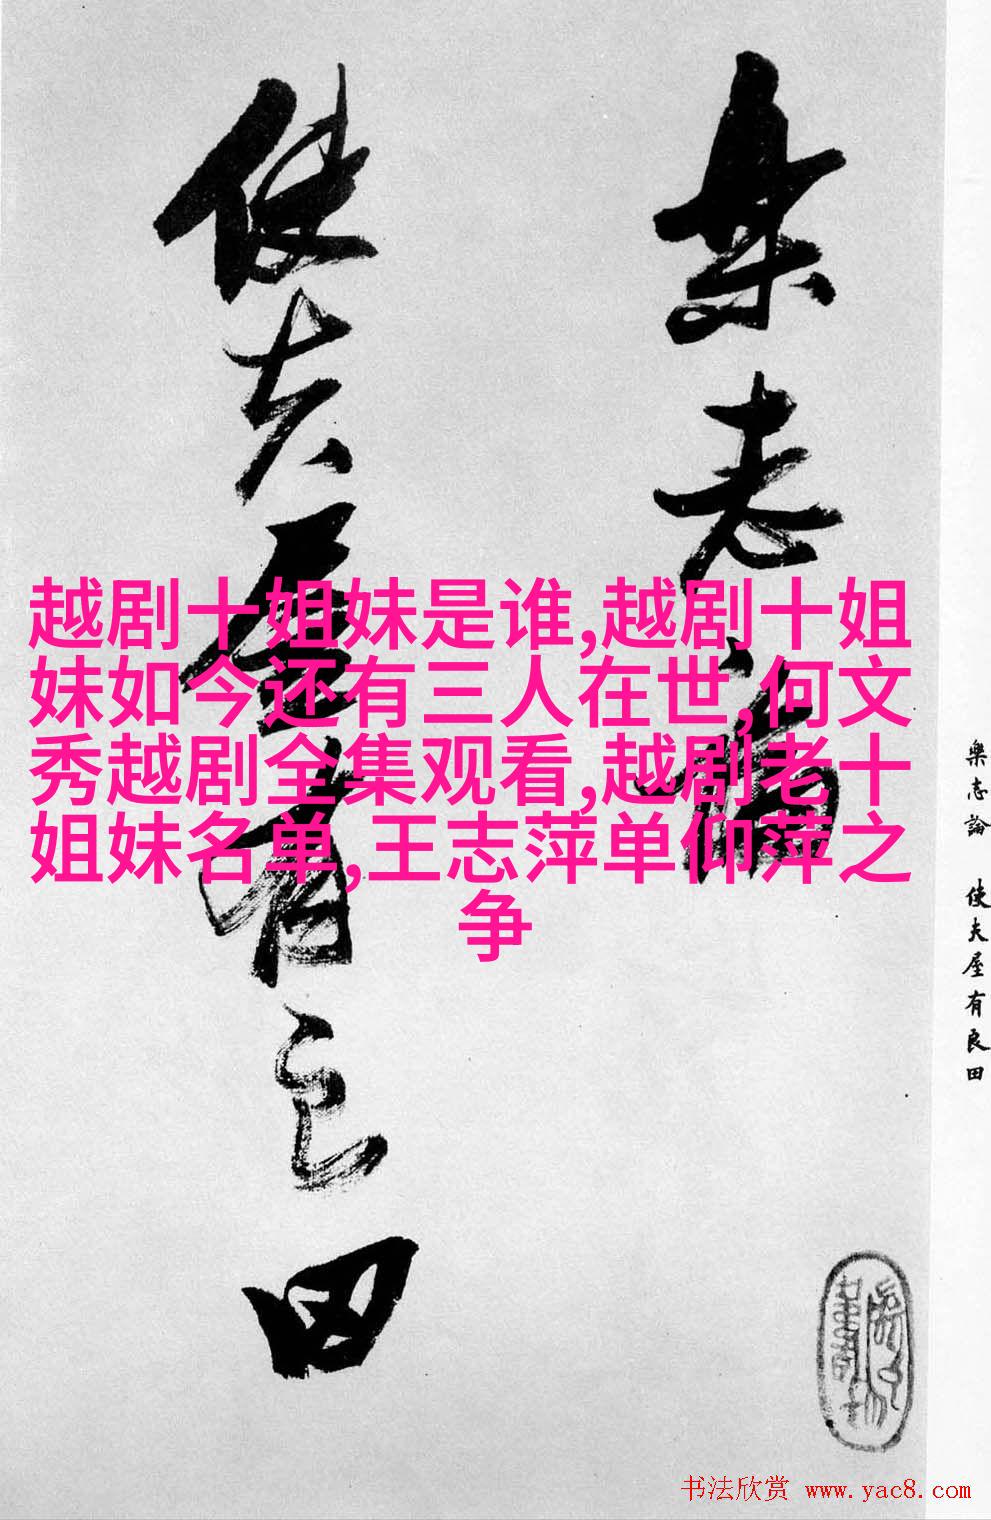 樂志論
使夫屋有良田
越剧十姐妹是谁,越剧十姐
妹如今还有三人在世,何文
秀越剧全集观看,越剧老十
姐妹名单,王志萍单仰萍之
争
樂志論 使夫屋有良田
书法欣赏 www.yac8.com